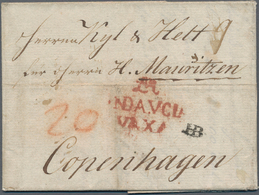 Herren Kyl & Hett
der Herrn H. Mauritzen
20
R
NDAVCL
VAXA
HB
Copenhagen